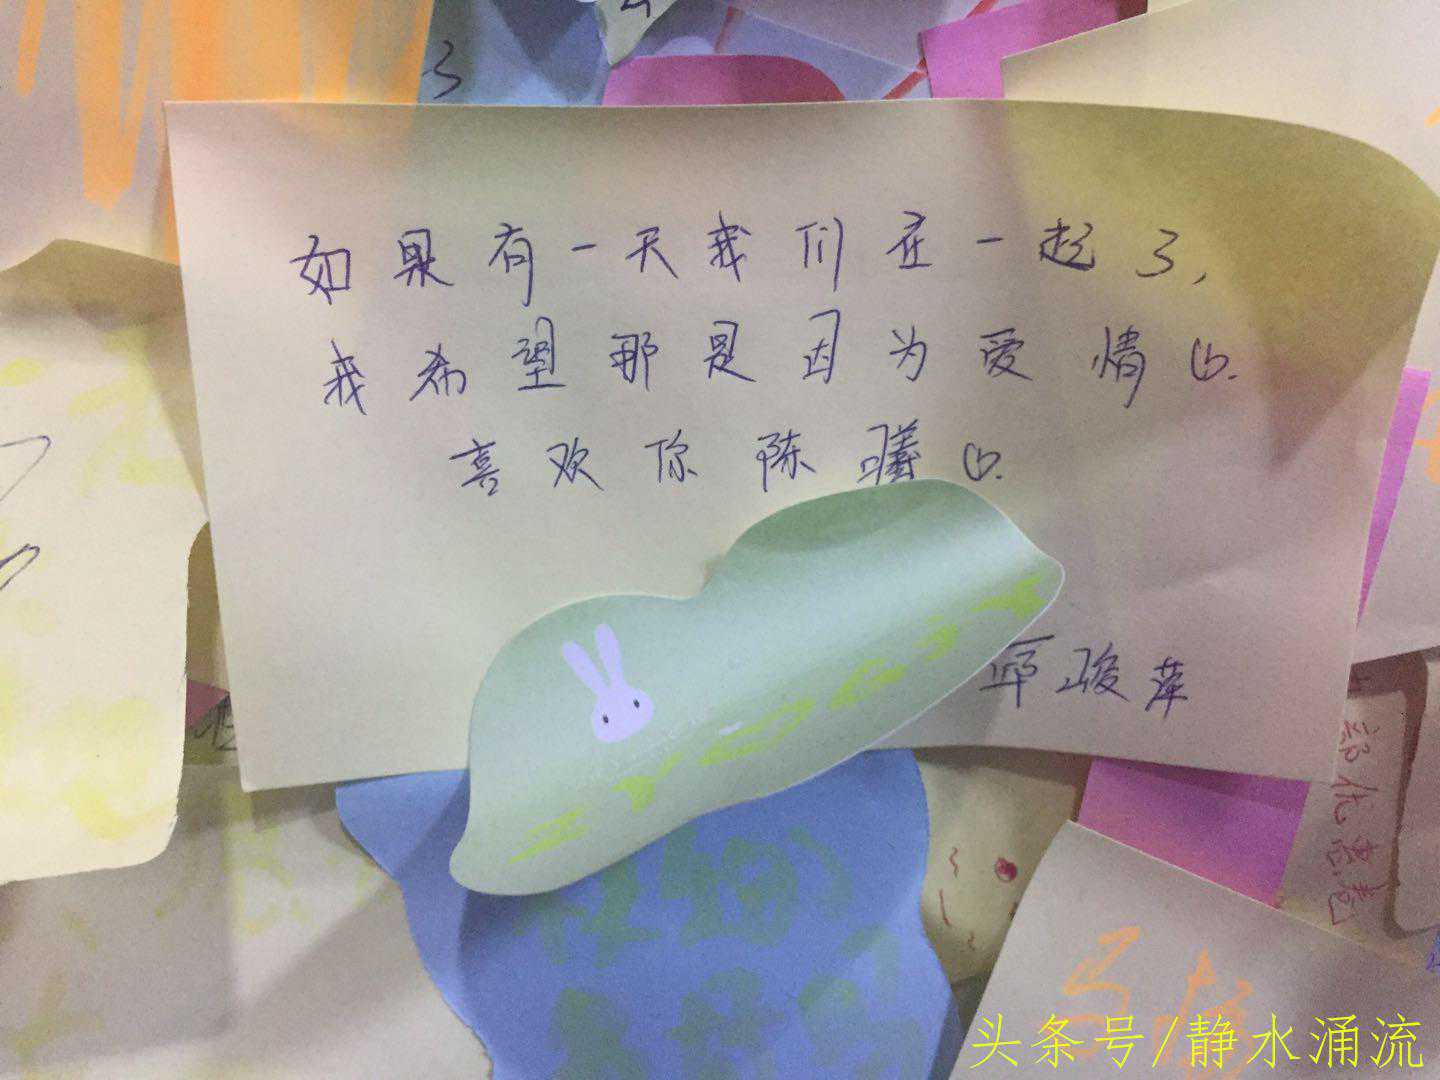 如果有一天我们在一起了，
我希望那是因为爱情♡.
喜欢你陈曦♡.
邱骏萍
头条号/静水涌流